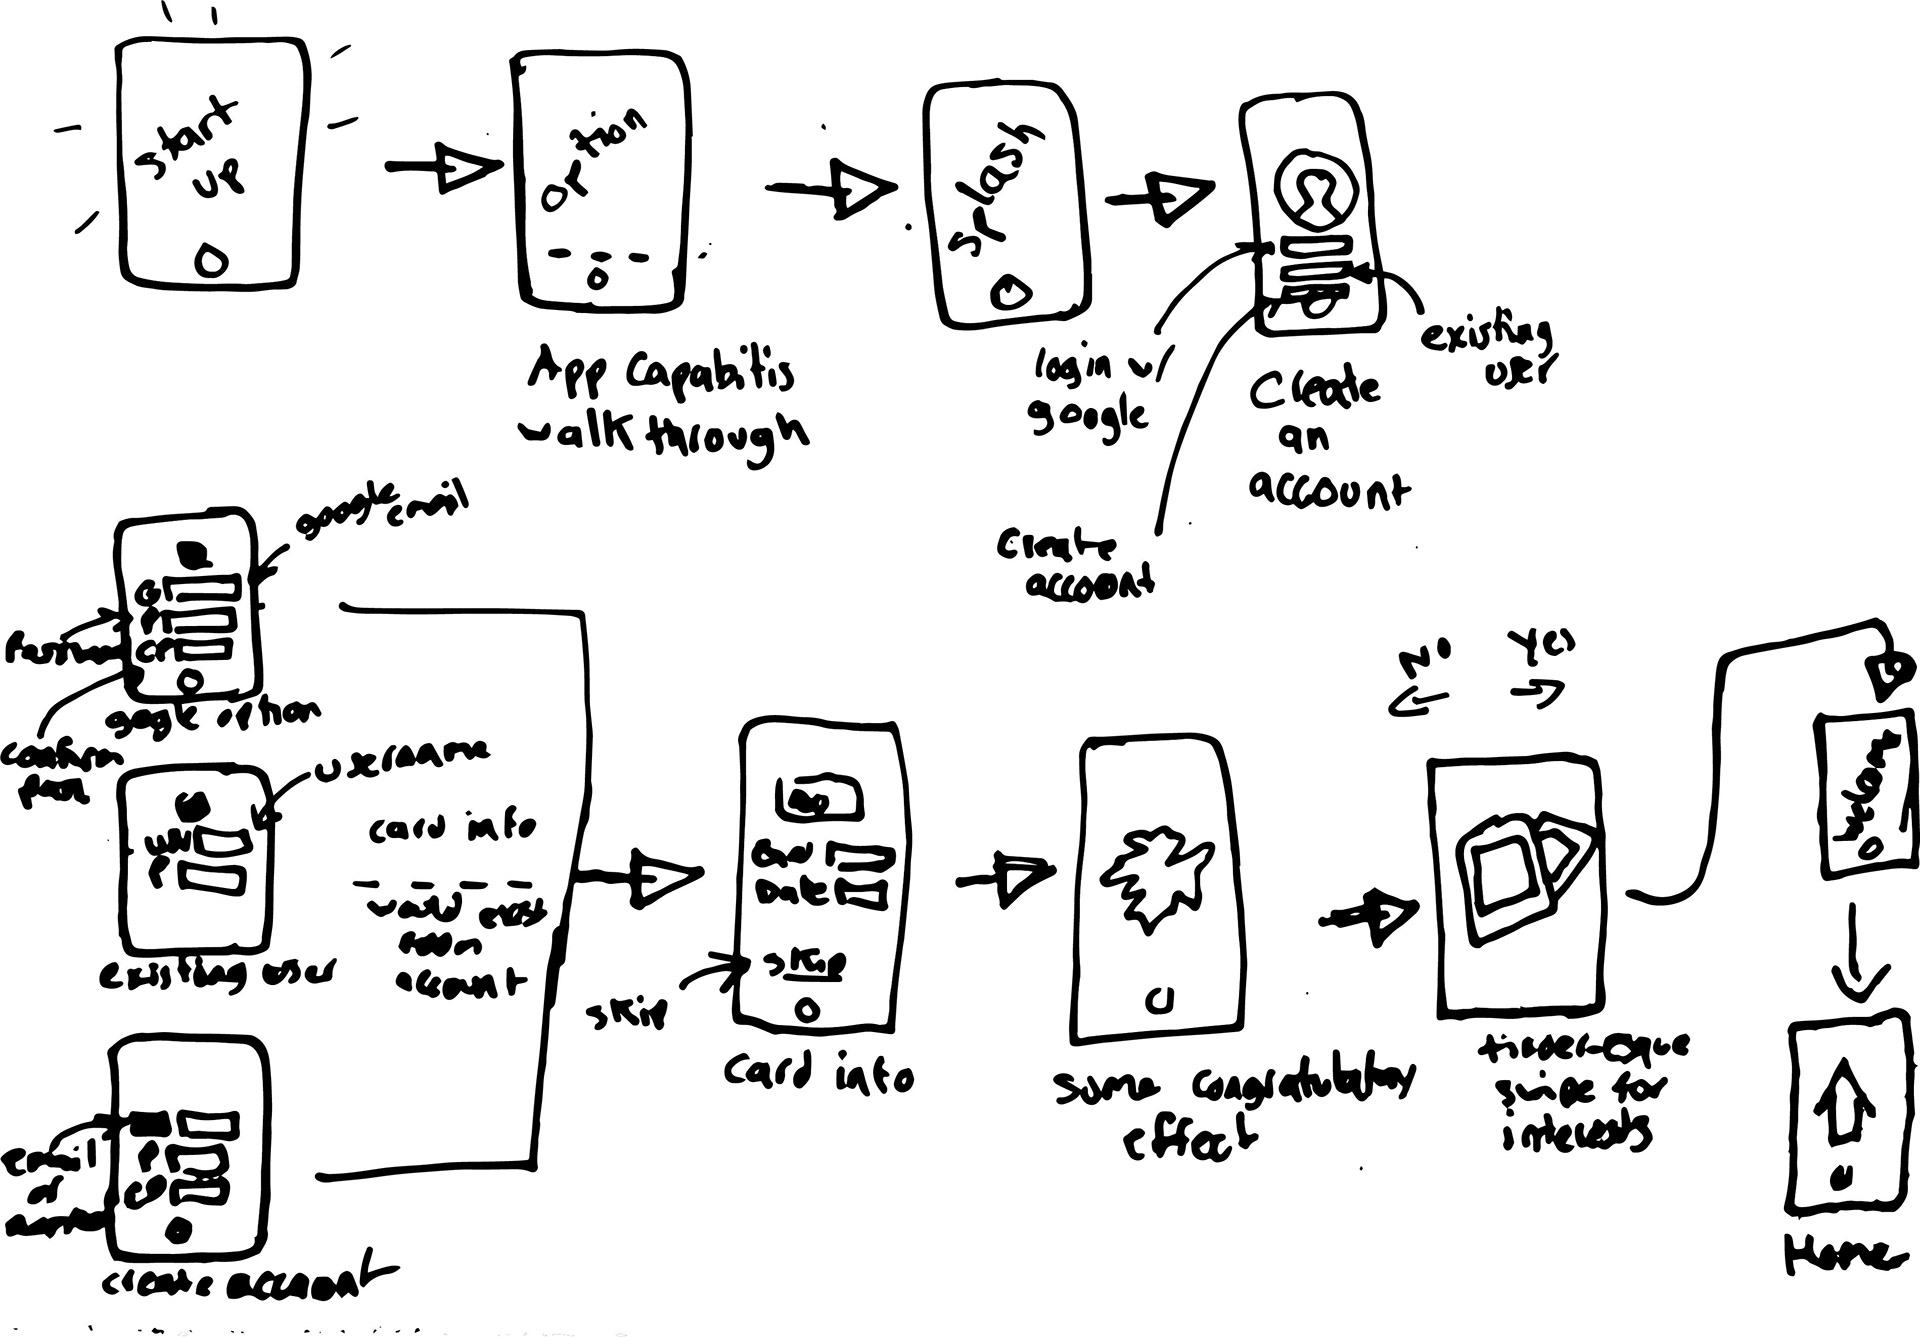 start
up
option
splash
App Capabitis
walk through
login w/
google
existing
user
Create
an
account
Create
account
google
email
G
P
CP
google option
confirm
username
UN
P
existing user
card info
would exist
account
Date
skip
skip
card info
some congratulatory
effect
No
Yes
tinder-esque
swipe for
interests
Welcome
Home
email
or
P
CP
create account